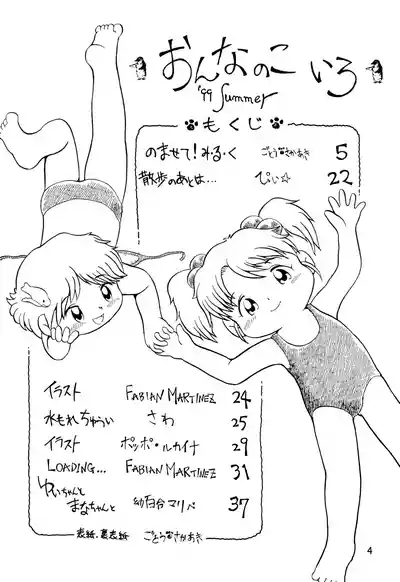 おんなのこ いろ
'99 Summer
もくじ
のませて!み・る・く ごとうまさかあき 5
散歩のあとは… ぴぃ☆ 22
イラスト FABIAN MARTINEZ 24
水もれちゅうい さわ 25
イラスト ポッポ・ルカイナ 29
LOADING... FABIAN MARTINEZ 31
ゆいちゃんと
まなちゃんと 幼白谷マリペ 37
表紙.裏表紙
4